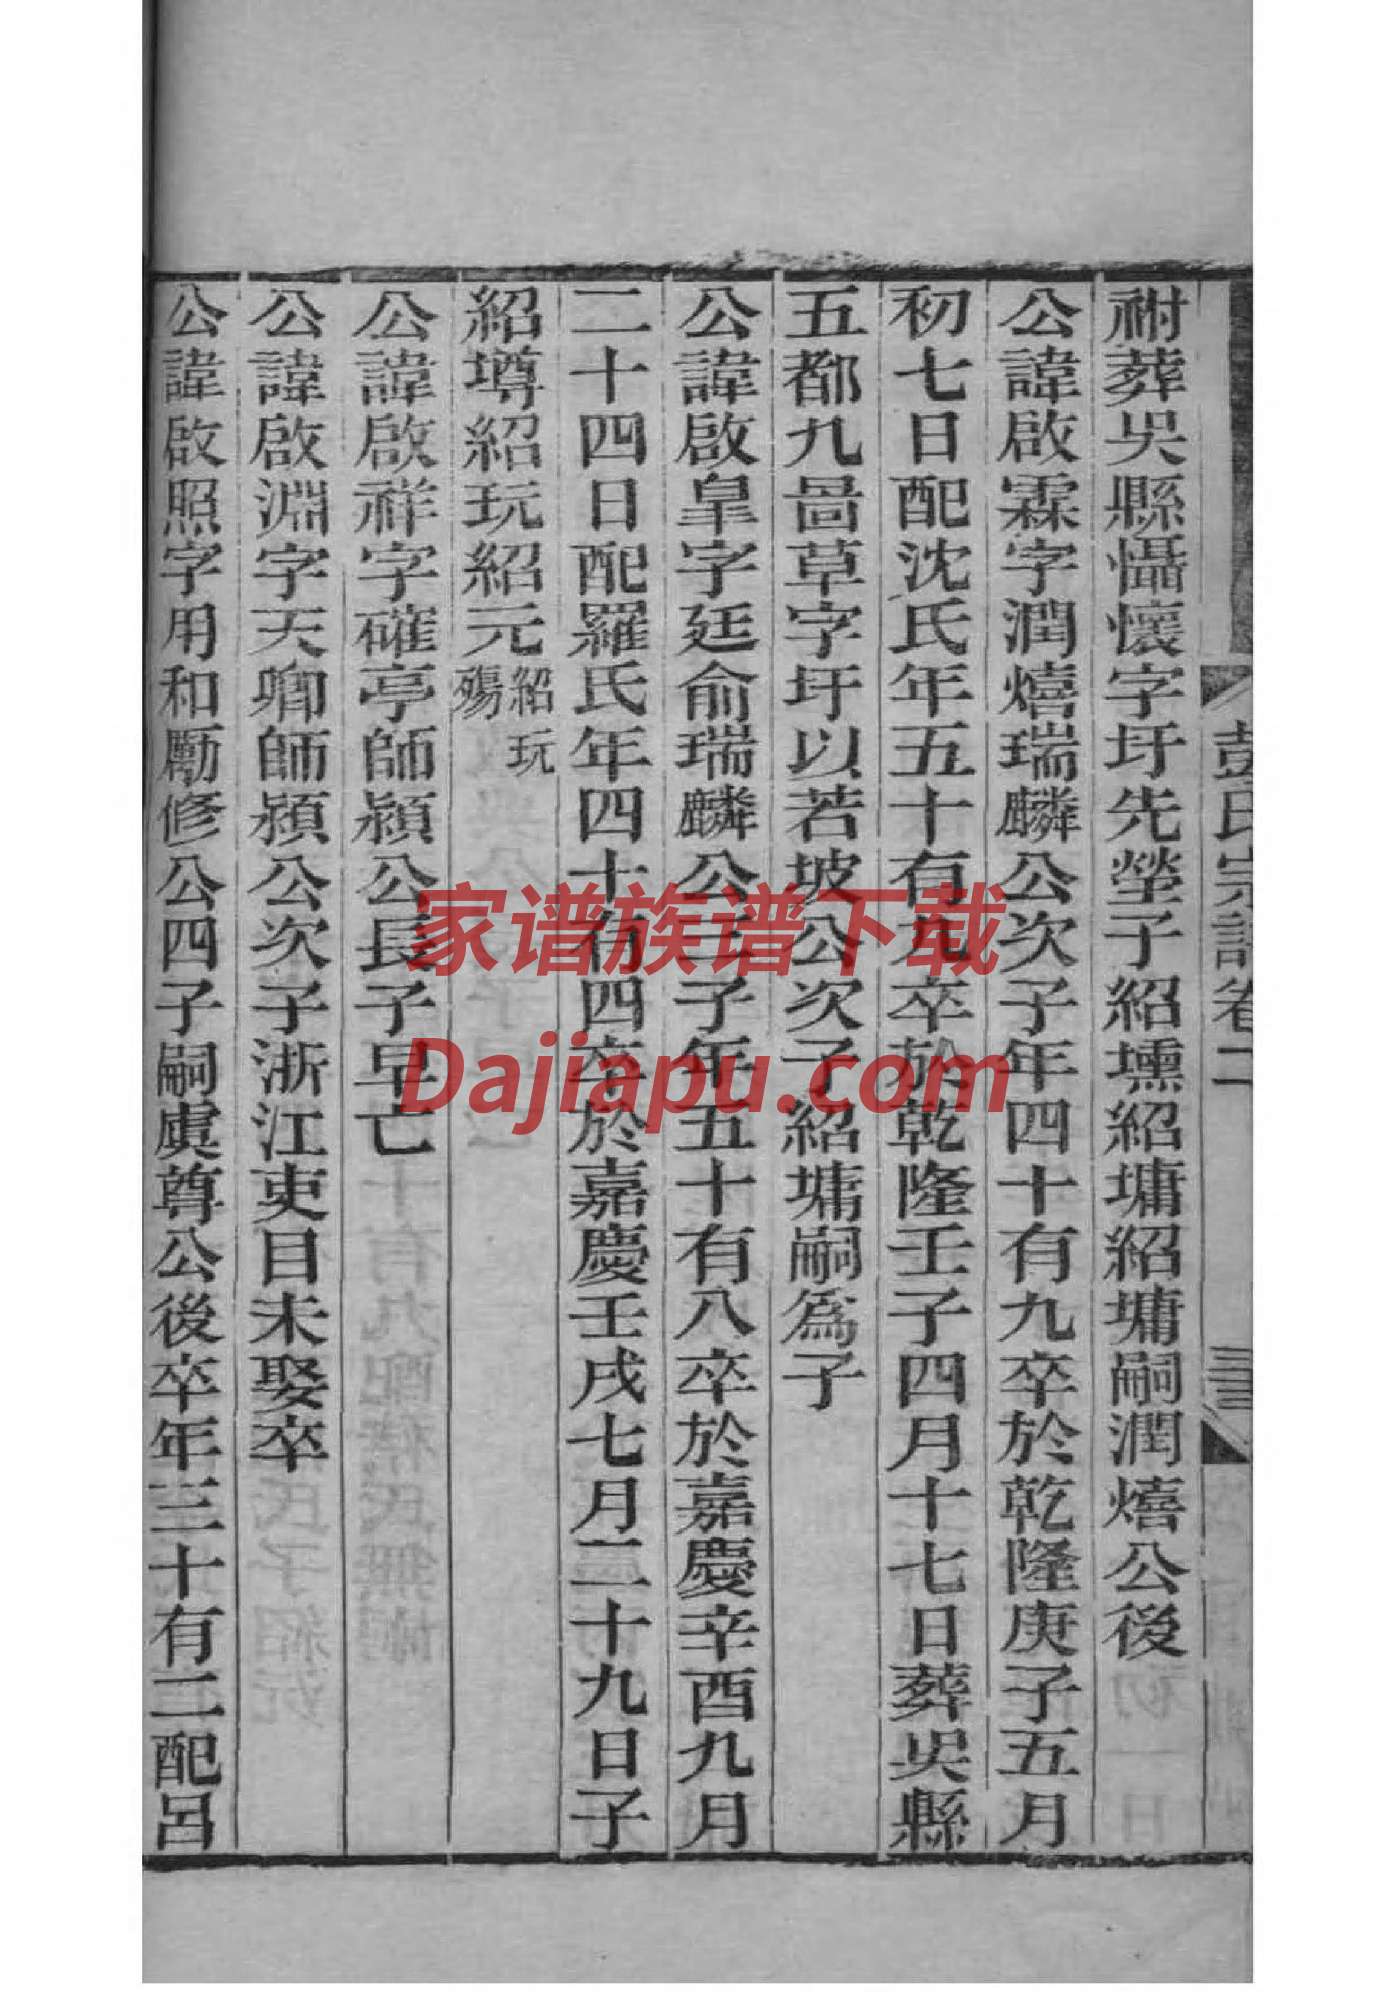 彭氏宗譜卷二
祔葬吳縣懾懷字圩先塋子紹壎紹墉紹墉嗣潤熺公後
公諱啟霖字潤熺瑞麟公次子年四十有九卒於乾隆庚子五月
初七日配沈氏年五十有九卒於乾隆壬子四月十七日葬吳縣
五都九啚草字圩以若坡公次子紹墉嗣為子
公諱啟皇字廷俞瑞麟公三子年五十有八卒於嘉慶辛酉九月
二十四日配羅氏年四十有四卒於嘉慶壬戌七月二十九日子
紹墫紹玩紹元紹玩殤
公諱啟祥字確亭師潁公長子早亡
公諱啟淵字天卿師潁公次子浙江吏目未娶卒
公諱啟照字用和勵修公四子嗣虞尊公後卒年三十有二配呂
家谱族谱下载
Dajiapu.com